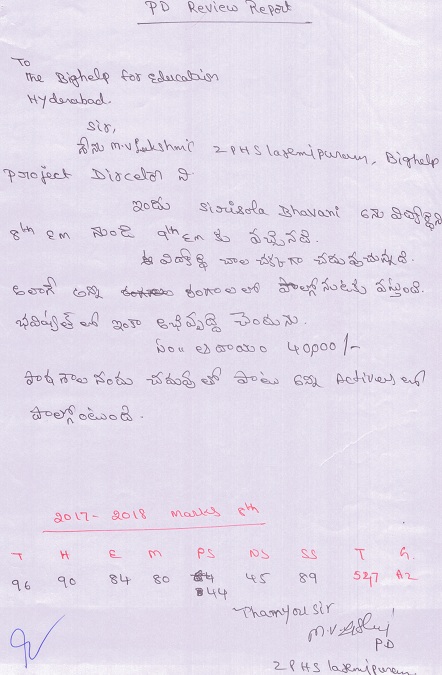 PD Review Report
To
The Bighelp for Education
Hyderabad.
Sir,
నేను M.V Lakshmi ZPHS laxmipuram, Bighelp
project Director ని
ఇందు Sirisola Bhavani అను విద్యార్థిని
8th Em నుండి 9th Em కు వచ్చినది.
ఈ విద్యార్థి చాల చక్కగా చదువుచున్నది.
అలాగే అన్ని రంగాలలో పాల్గొనుటకు వస్తుంది.
భవిష్యత్ లో ఇంకా అభివృద్ధి చెందును.
సం॥ ఆదాయం 40,000/-
పాఠశాల నందు చదువుతో పాటు అన్ని Activies లో
పాల్గొంటుంది.
2017-2018 marks 8th
T H E M PS NS SS T G.
96 90 84 80 44 45 89 527 A2
Thamyou Sir
PD
ZPHS laxmipuram